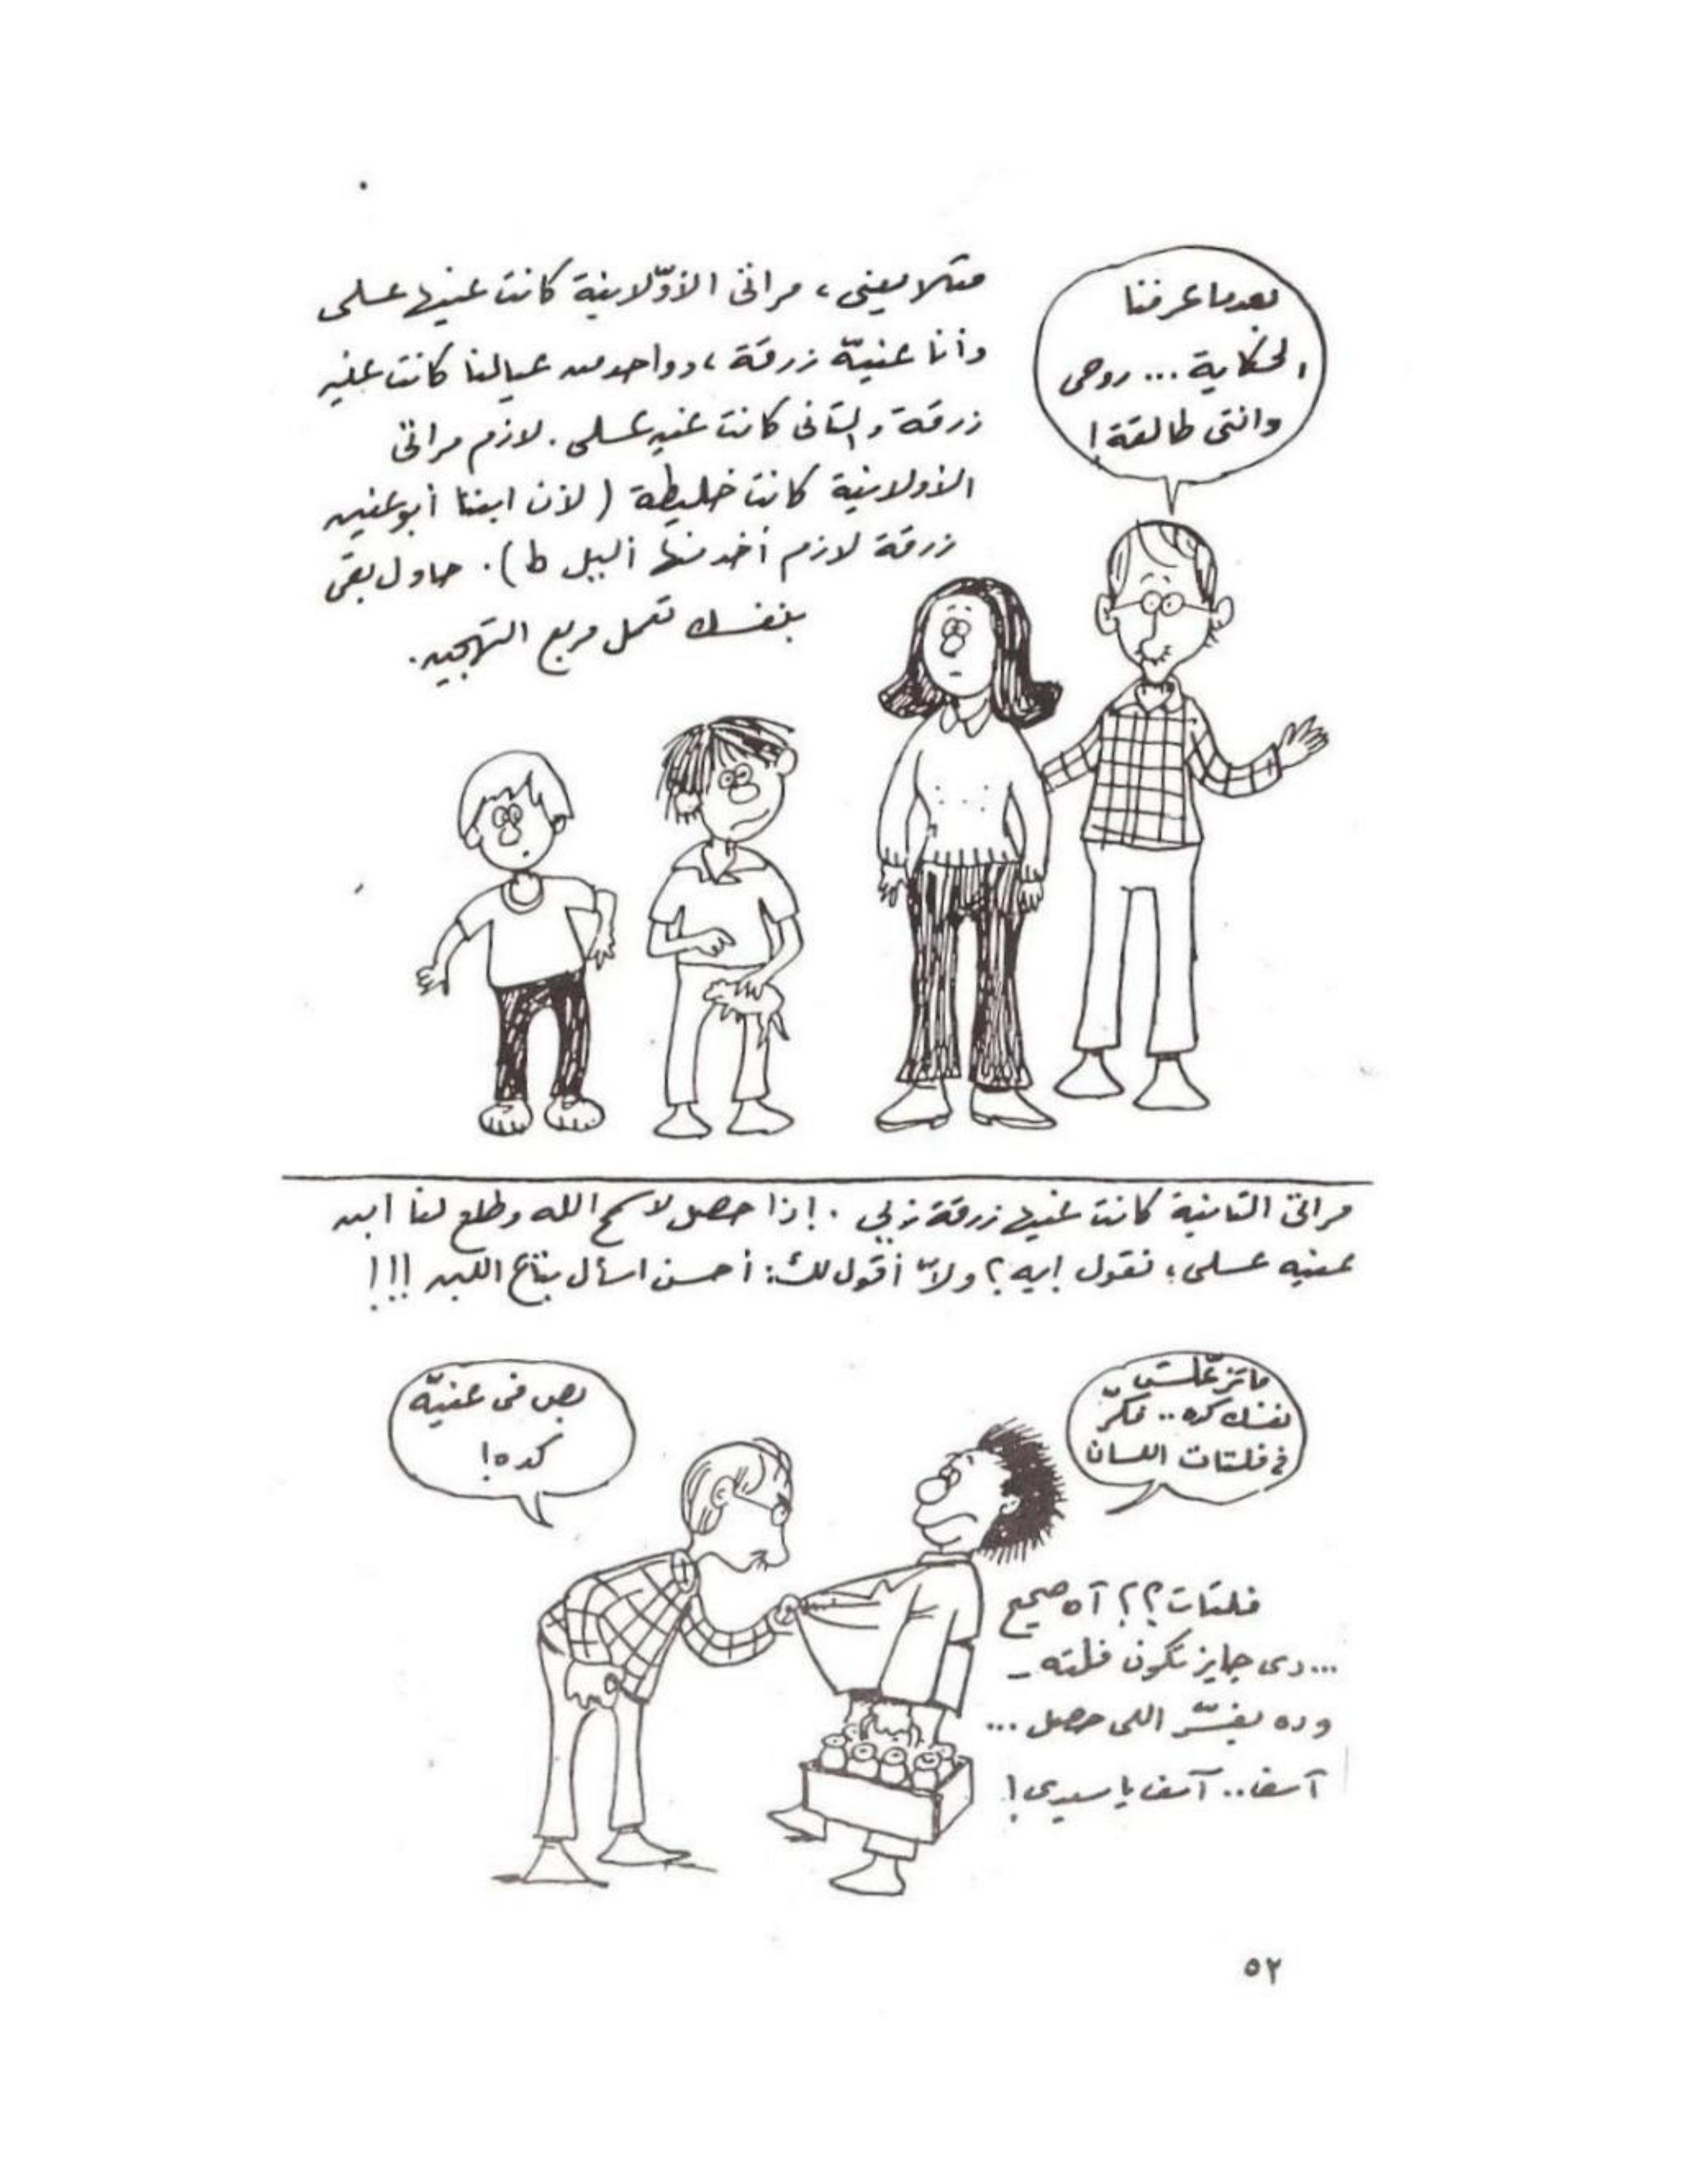 بعدما عرفنا
الحكاية... روحى
وانتى طالقة!
مثلا يعنى، مراتى الأوّلانية كانت عنيها عسلى
وأنا عنيّه زرقة، وواحد من عيالنا كانت عنيه
زرقة والتانى كانت عنيه عسلى. لازم مراتى
الأولانية كانت خليطة (لأن ابننا أبو عنين
زرقة لازم أخد منها أليل ط). حاول بقى
بنفسك تعمل مربع التهجين.
مراتى التانية كانت عنيها زرقة زيى. إذا حصل لا سمح الله وطلع لنا ابن
عنيه عسلى، نقول إيه؟ ولاّ أقول لك: أحسن اسأل بتاع اللبن!!!
ماتزعّلش
نفسك كده.. فكّر
فى فلتات اللسان
بص فى عنيّه
كده!
فلتات؟؟ آه صحيح
...دى جايز تكون فلته _
وده يفسّر اللى حصل...
آسف.. آسف يا سيدى!
٥٢